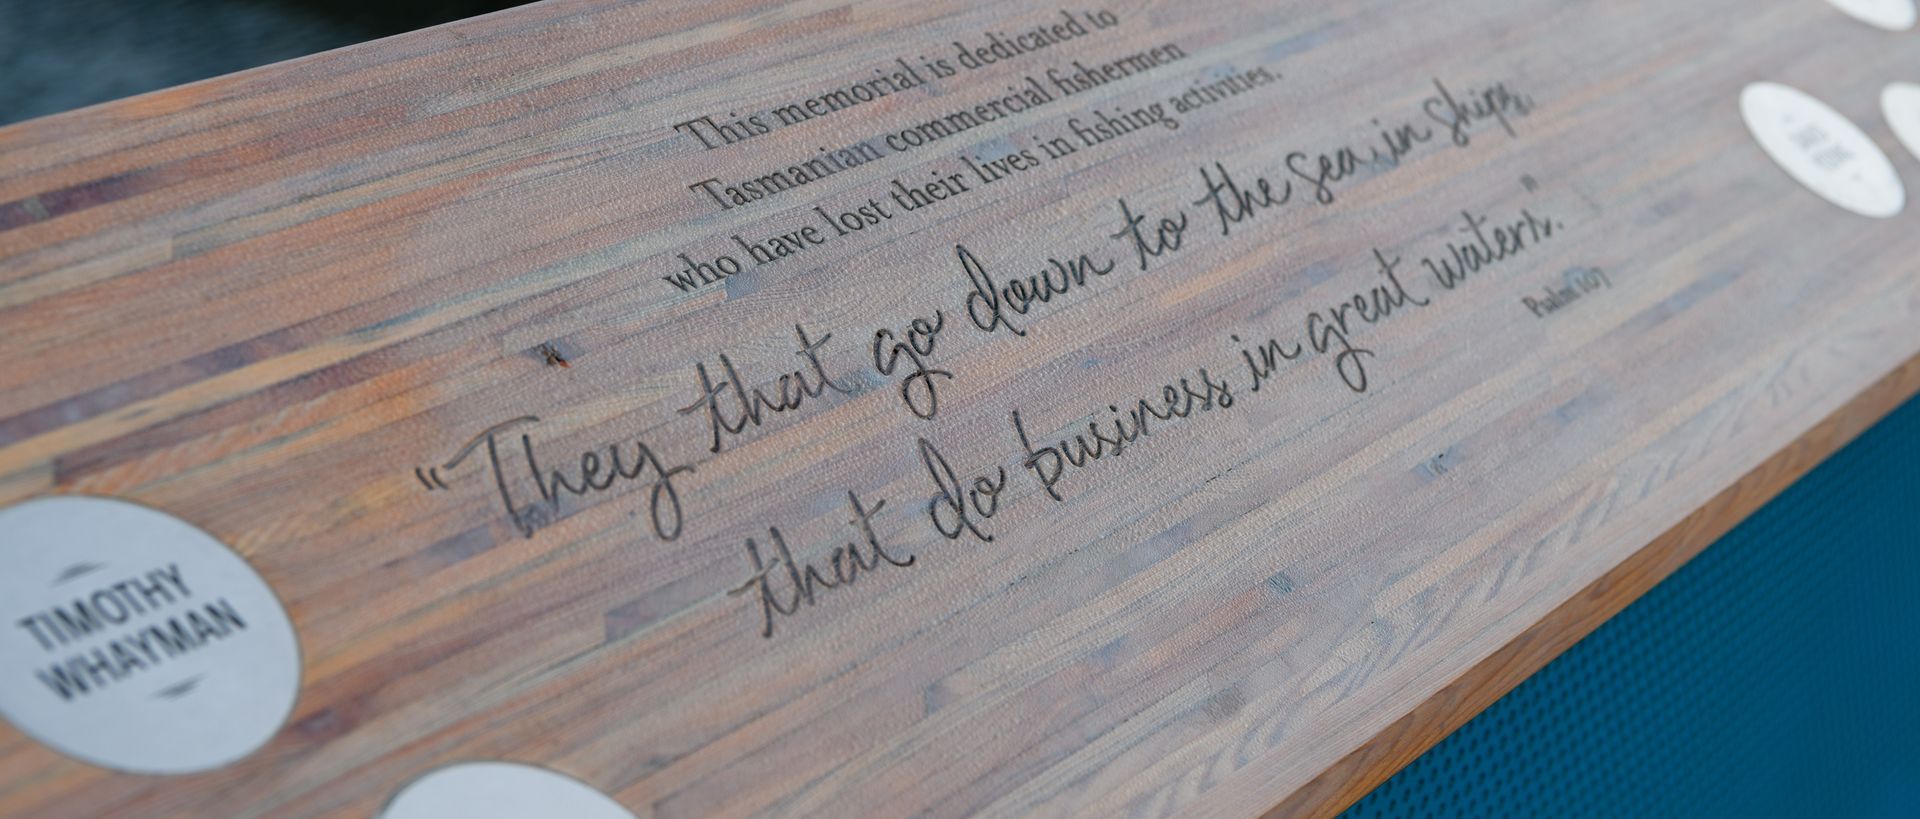 This memorial is dedicated to
Tasmanian commercial fishermen
who have lost their lives in fishing activities.
“They that go down to the sea in ships,
that do business in great waters.”
Psalm 107
TIMOTHY
WHAYMAN